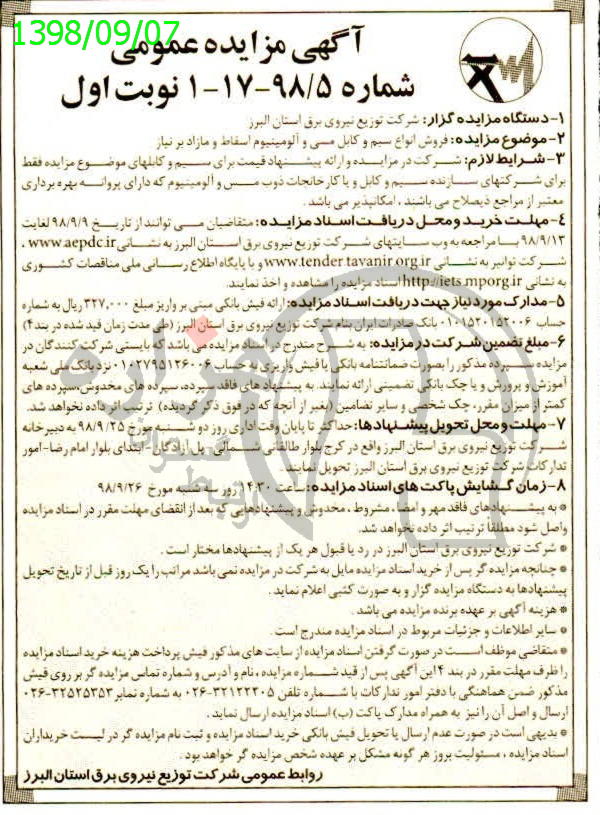 1398/09/07
آگهی مزایده عمومی
شماره ۹۸/۵-۱۷-۱ نوبت اول
۱-دستگاه مزایده گزار: شرکت توزیع نیروی برق استان البرز
۲-موضوع مزایده: فروش انواع سیم و کابل مسی و آلومینیوم اسقاط و مازاد بر نیاز
۳-شرایط لازم: شرکت در مزایده و ارائه پیشنهاد قیمت برای سیم و کابلهای موضوع مزایده فقط
برای شرکتهای سازنده سیم و کابل و یا کارخانجات ذوب مس و آلومینیوم که دارای پروانه بهره برداری
معتبر از مراجع ذیصلاح می باشند، امکانپذیر می باشد.
۴-مهلت خرید و محل دریافت اسناد مزایده: متقاضیان می توانند از تاریخ ۹۸/۹/۹ لغایت
۹۸/۹/۱۳ با مراجعه به وب سایتهای شرکت توزیع نیروی برق استان البرز به نشانی www.aepdc.ir ،
شرکت توانیر به نشانی www.tender.tavanir.org.ir و یا پایگاه اطلاع رسانی ملی مناقصات کشوری
به نشانی http://iets.mporg.ir اسناد مزایده را مشاهده و اخذ نمایند.
۵-مدارک مورد نیاز جهت دریافت اسناد مزایده: ارائه فیش بانکی مبنی بر واریز مبلغ ۳۲۷,۰۰۰ ریال به شماره
حساب ۰۱۰۱۵۲۰۱۵۲۰۰۶ بانک صادرات ایران بنام شرکت توزیع نیروی برق استان البرز (طی مدت زمان قید شده در بند۴)
۶-مبلغ تضمین شرکت در مزایده: به شرح مندرج در اسناد مزایده می باشد که بایستی شرکت کنندگان در
مزایده سپرده مذکور را بصورت ضمانتنامه بانکی یا فیش واریزی به حساب ۰۱۰۲۷۹۵۱۲۶۰۰۶ نزد بانک ملی شعبه
آموزش و پرورش و یا چک بانکی تضمینی ارائه نمایند. به پیشنهاد های فاقد سپرده، سپرده های مخدوش، سپرده های
کمتر از میزان مقرر، چک شخصی و سایر تضامین (بغیر از آنچه که در فوق ذکر گردیده) ترتیب اثر داده نخواهد شد.
۷-مهلت و محل تحویل پیشنهادها: حداکثر تا پایان وقت اداری روز دو شنبه مورخ ۹۸/۹/۲۵ به دبیرخانه
شرکت توزیع نیروی برق استان البرز واقع در کرج بلوار طالقانی شمالی- پل آزادگان-ابتدای بلوار امام رضا-امور
تدارکات شرکت توزیع نیروی برق استان البرز تحویل نمایند.
۸-زمان گشایش پاکت های اسناد مزایده: ساعت ۱۴:۳۰ روز سه شنبه مورخ ۹۸/۹/۲۶
* به پیشنهادهای فاقد مهر و امضا، مشروط، مخدوش و پیشنهادهایی که بعد از انقضای مهلت مقرر در اسناد مزایده
واصل شود مطلقا ترتیب اثر داده نخواهد شد.
* شرکت توزیع نیروی برق استان البرز در رد یا قبول هر یک از پیشنهادها مختار است.
* چنانچه مزایده گر پس از خرید اسناد مزایده مایل به شرکت در مزایده نمی باشد مراتب را یک روز قبل از تاریخ تحویل
پیشنهادها به دستگاه مزایده گزار و به صورت کتبی اعلام نماید.
* هزینه آگهی بر عهده برنده مزایده می باشد.
* سایر اطلاعات و جزئیات مربوط در اسناد مزایده مندرج است.
* متقاضی موظف است در صورت گرفتن اسناد مزایده از سایت های مذکور فیش پرداخت هزینه خرید اسناد مزایده
را ظرف مهلت مقرر در بند ۴ این آگهی پس از قید شماره مزایده، نام و آدرس و شماره تماس مزایده گر بر روی فیش
مذکور ضمن هماهنگی با دفتر امور تدارکات با شماره تلفن ۳۲۱۲۲۲۰۵-۰۲۶ به شماره نمابر ۳۲۵۲۵۳۵۳-۰۲۶
ارسال و اصل آن را نیز به همراه مدارک پاکت (ب) اسناد مزایده ارسال نماید.
* بدیهی است در صورت عدم ارسال یا تحویل فیش بانکی خرید اسناد مزایده و ثبت نام مزایده گر در لیست خریداران
اسناد مزایده، مسئولیت بروز هر گونه مشکل بر عهده شخص مزایده گر خواهد بود.
روابط عمومی شرکت توزیع نیروی برق استان البرز